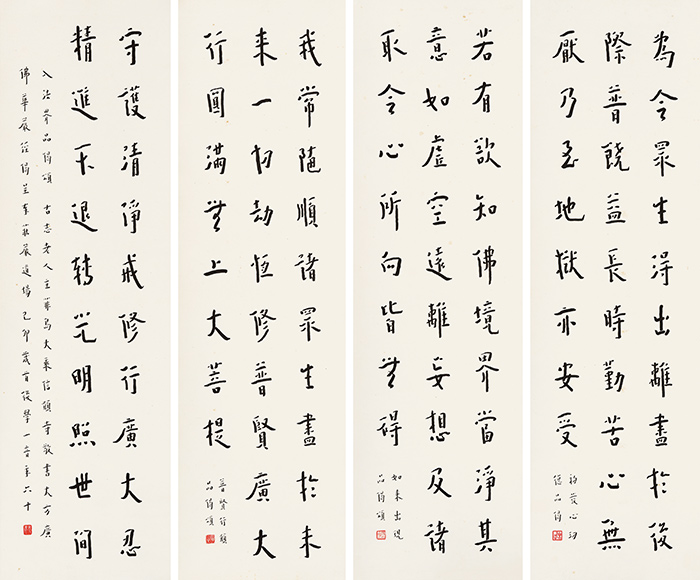 為令眾生得出離盡於後
際普饒益長時勤苦心無
厭乃至地獄亦安受
初發心功
德品偈
若有欲知佛境界當淨其
意如虛空遠離妄想及諸
取令心所向皆無碍
如來出現
品偈頌
我常隨順諸眾生盡於未
來一切劫恒修普賢廣大
行圓滿無上大菩提
普賢行願
品偈頌
守護清淨戒修行廣大忍
精進不退轉光明照世間
入法界品偈頌 老人 為大乘信願寺敬書大方廣
佛華嚴經偈並奉莊嚴道場 己卯歲首後學一音年六十